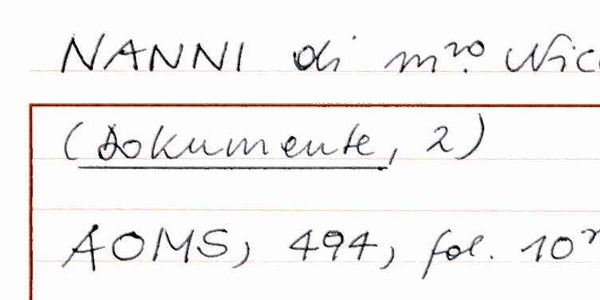 NANNI di mro. Nic
(Dokumente, 2)
AOMS, 494, fol. 10r